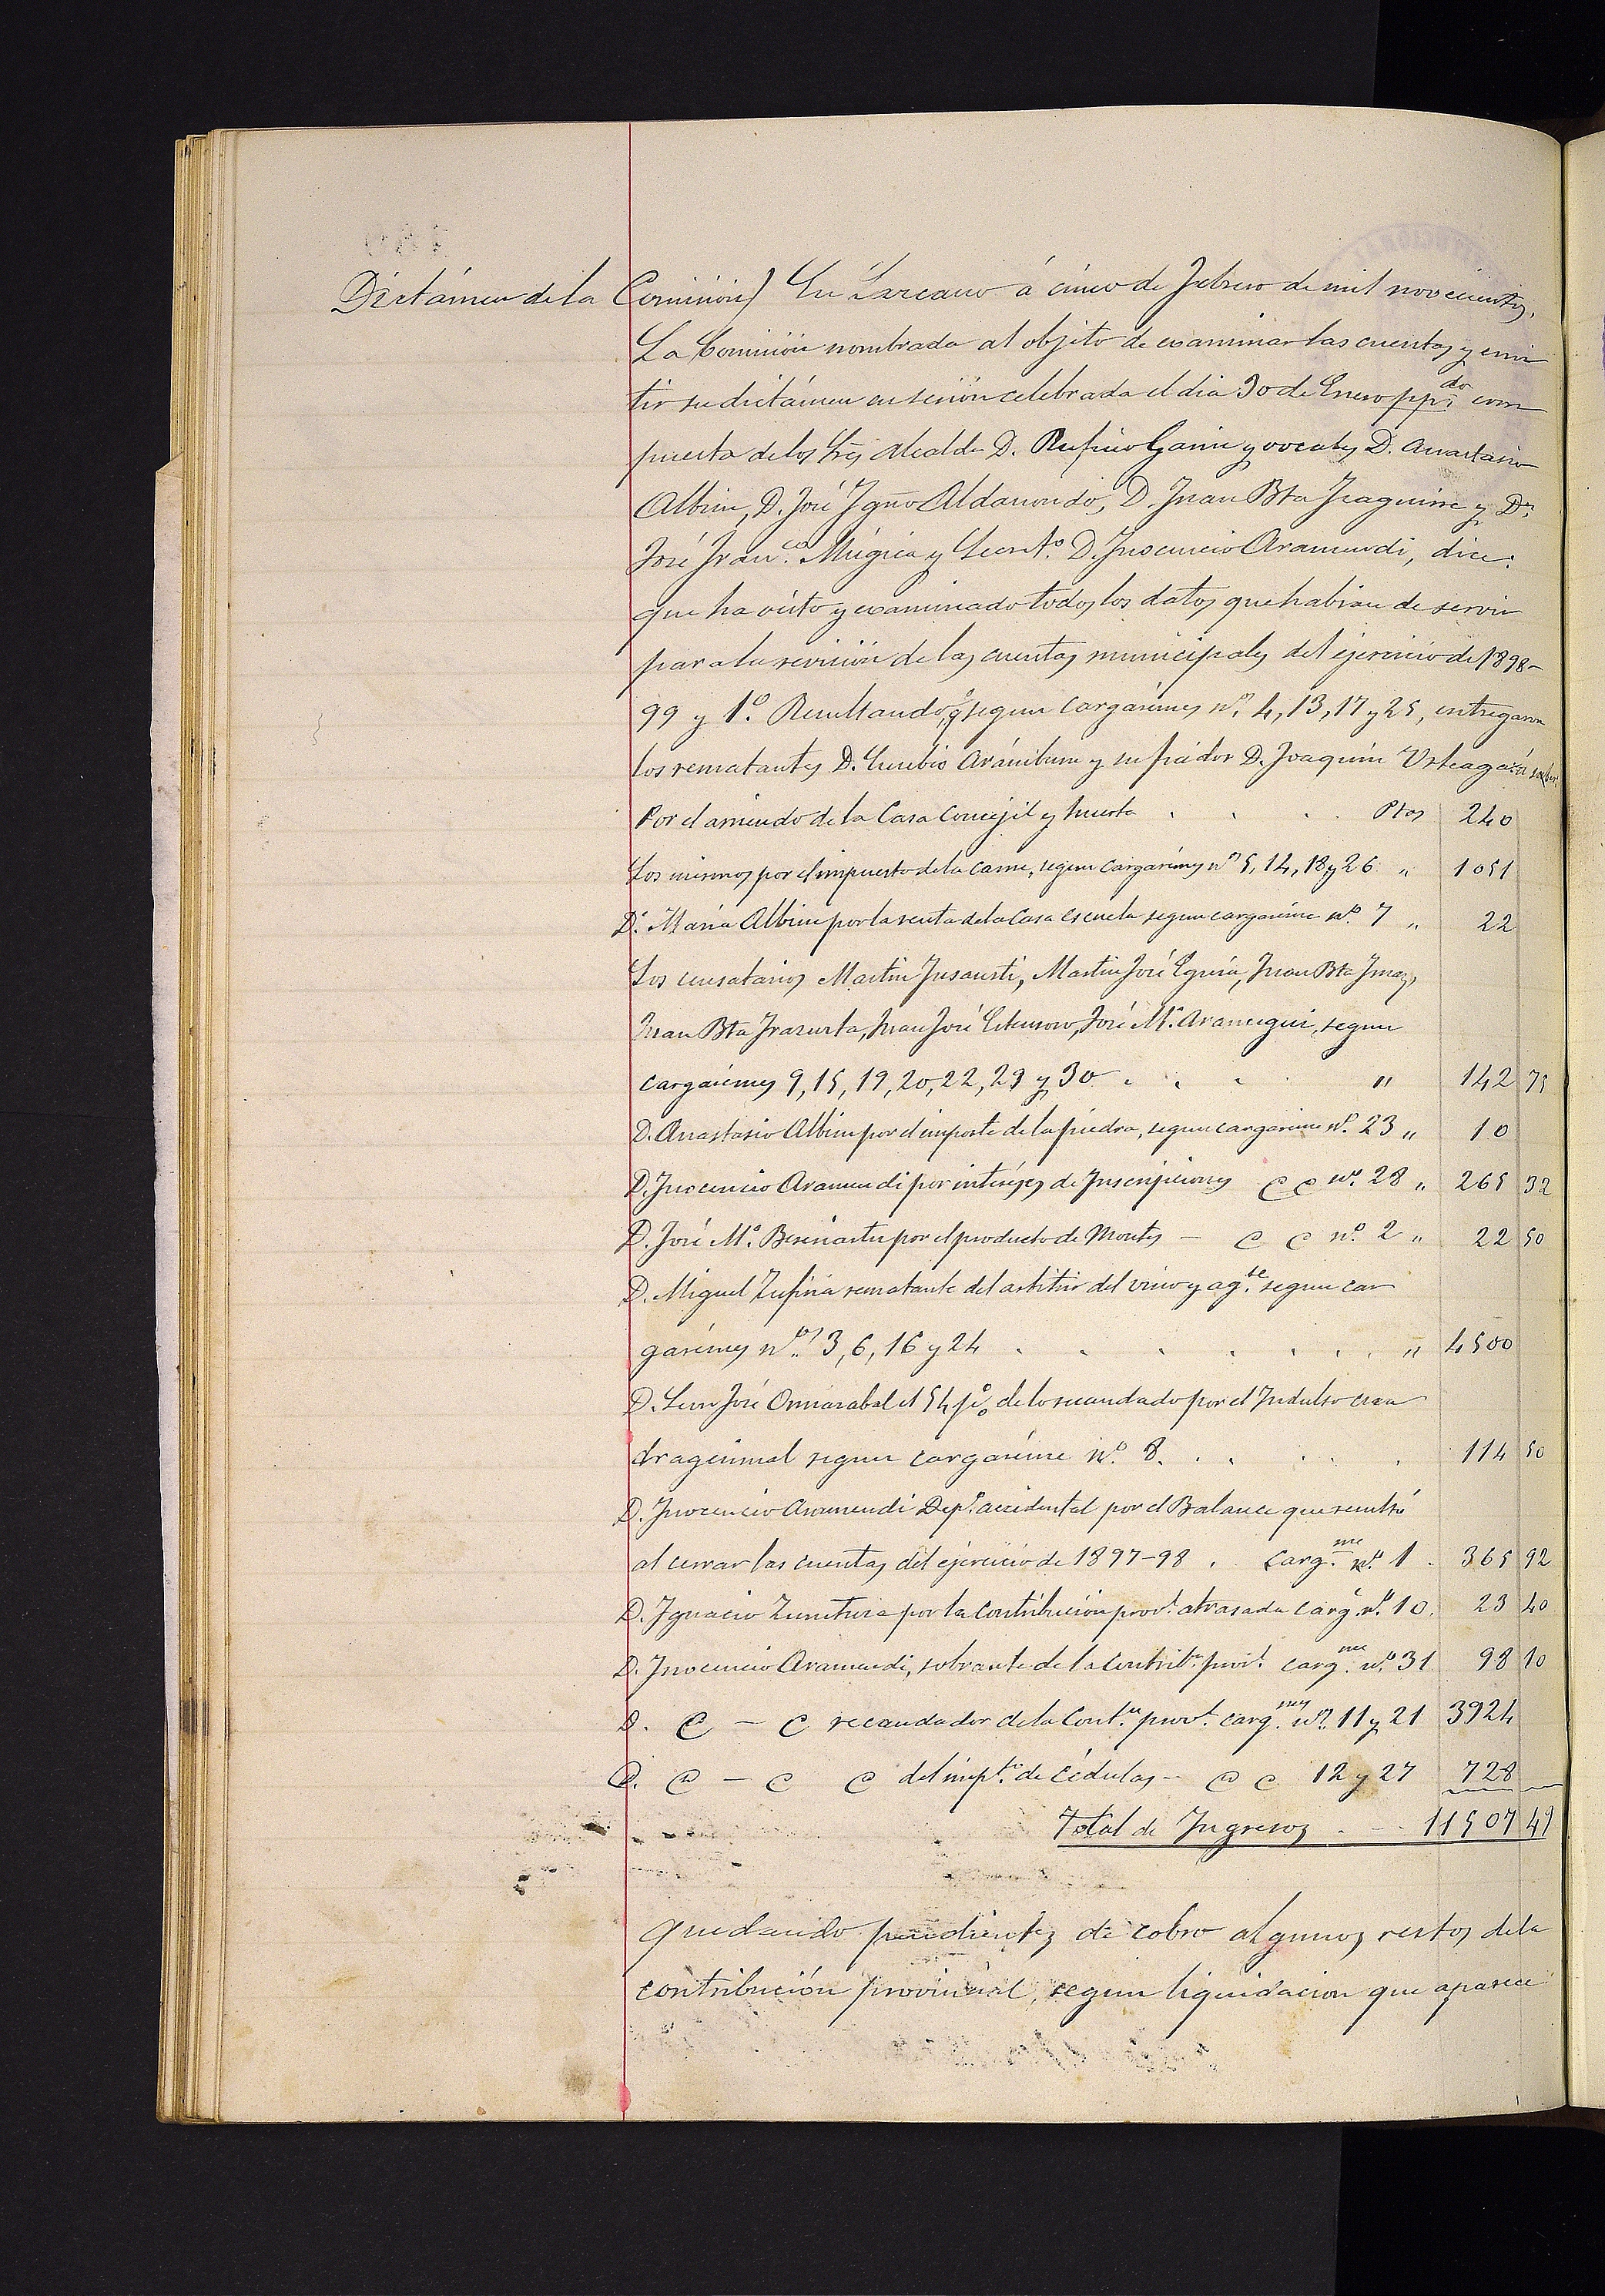 Dictámen de la Comisión) En Lazcano á cinco de Febrero de mil novecientos.
La Comisión nombrada al objeto de examinar las cuentas y emi
tir su dictámen en sesión celebrada el dia 30 de Enero pp.do com
puesta de los Sres Alcalde D. Rufino Garin y vocales D. Anastasio
Albisu, D. José Ygno Aldanondo, D. Juan Bta Yraguirre y Dn
José Franco. Múgica y Secreto. D. Ynocencio Aramendi, dice:
que ha visto y examinado todos los datos que habian de servir
para la revisión de las cuentas municipales del ejercicio de 1898-
99 y 1º. Resultando, q. segun cargarémes ns. 4, 13, 17 y 25, entregaron
los rematantes D. Eusebio Aránburu y su fiador D. Joaquín Urteaga á saber
Por el arriendo de la Casa Concejil y huerta . . . Ptas 240
Los mismos por el impuesto de la carne, segun cargarémes ns 5, 14, 18 y 26 „ 1051
Dª. Maria Albisu por la renta de la Casa Escuela segun cargaréme nº. 7 „ 22
Los censatarios Martin Ynsausti, Martin José Eguia, Juan Bta Ymaz,
Juan Bta Yrazusta, Juan José , José Mª. Aramegui, segun
cargarémes 9, 15, 19, 20, 22, 29 y 30 . . . „ 142 75
D. Anastasio Albisu por el importe de la piedra, segun cargaréme nº. 23 „ 10
D. Ynocencio Aramendi por intéreses de Ynscripciones C C nº. 28 „ 265 32
D. José Mª. por el producto de Montes - C C nº. 2 „ 22 50
D. Miguel Zufiria rematante del arbitrio del vino y agte. segun car
garémes nos. 3, 6, 16 y 24 . . . . . . „ 4500
D. José el 54 pº/o de lo recaudado por el Yndulto cua
dragesimal segun cargaréme nº. 8. . . . . . 114 50
D. Ynocencio Aramendi Depº. accidental por el Balance que resultó
al cerrar las cuentas del ejercicio de 1897-98 . Carg.me nº. 1 . 365 92
D. Ygnacio por la Contribución provl. atrasada carg. nº. 10. 23 40
D. Ynocencio Aramendi, sobrante de la Contribn. provl. carg.me nº. 31 98 10
D. C - C recaudador de la Contn. provl. carg.mes ns. 11 y 21 3924
D. C - C C del impto. de Cédulas - C C 12 y 27 728
Total de Yngresos . - - 11507 49
quedando pendientes de cobro algunos restos de la
contribución provincial, segun liquidacion que aparece